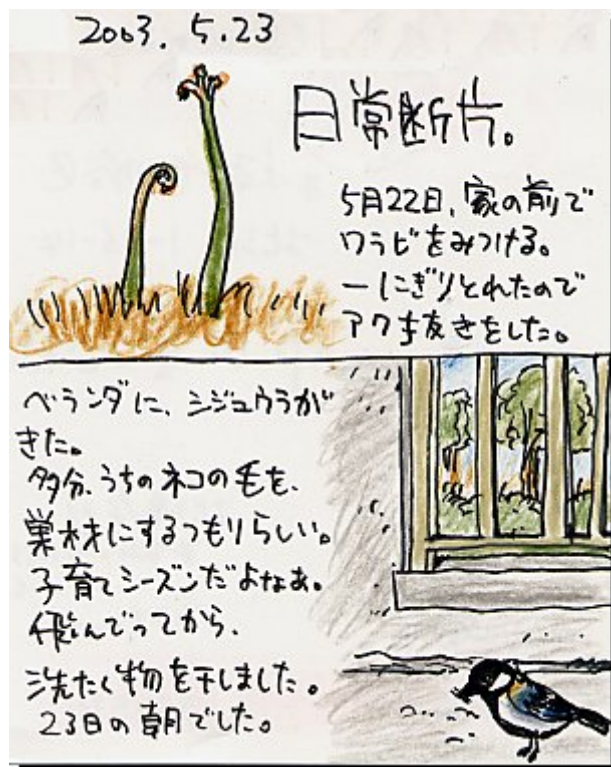 2003. 5.23
日常断片。
5月22日、家の前で
ワラビをみつける。
一にぎりとれたので
アク抜きをした。
ベランダに、シジュウラが
きた。
多分、うちのネコの毛を、
巣材にするつもりらしい。
子育てシーズンだよなぁ。
飛んでってから、
洗たく物を干しました。
23日の朝でした。